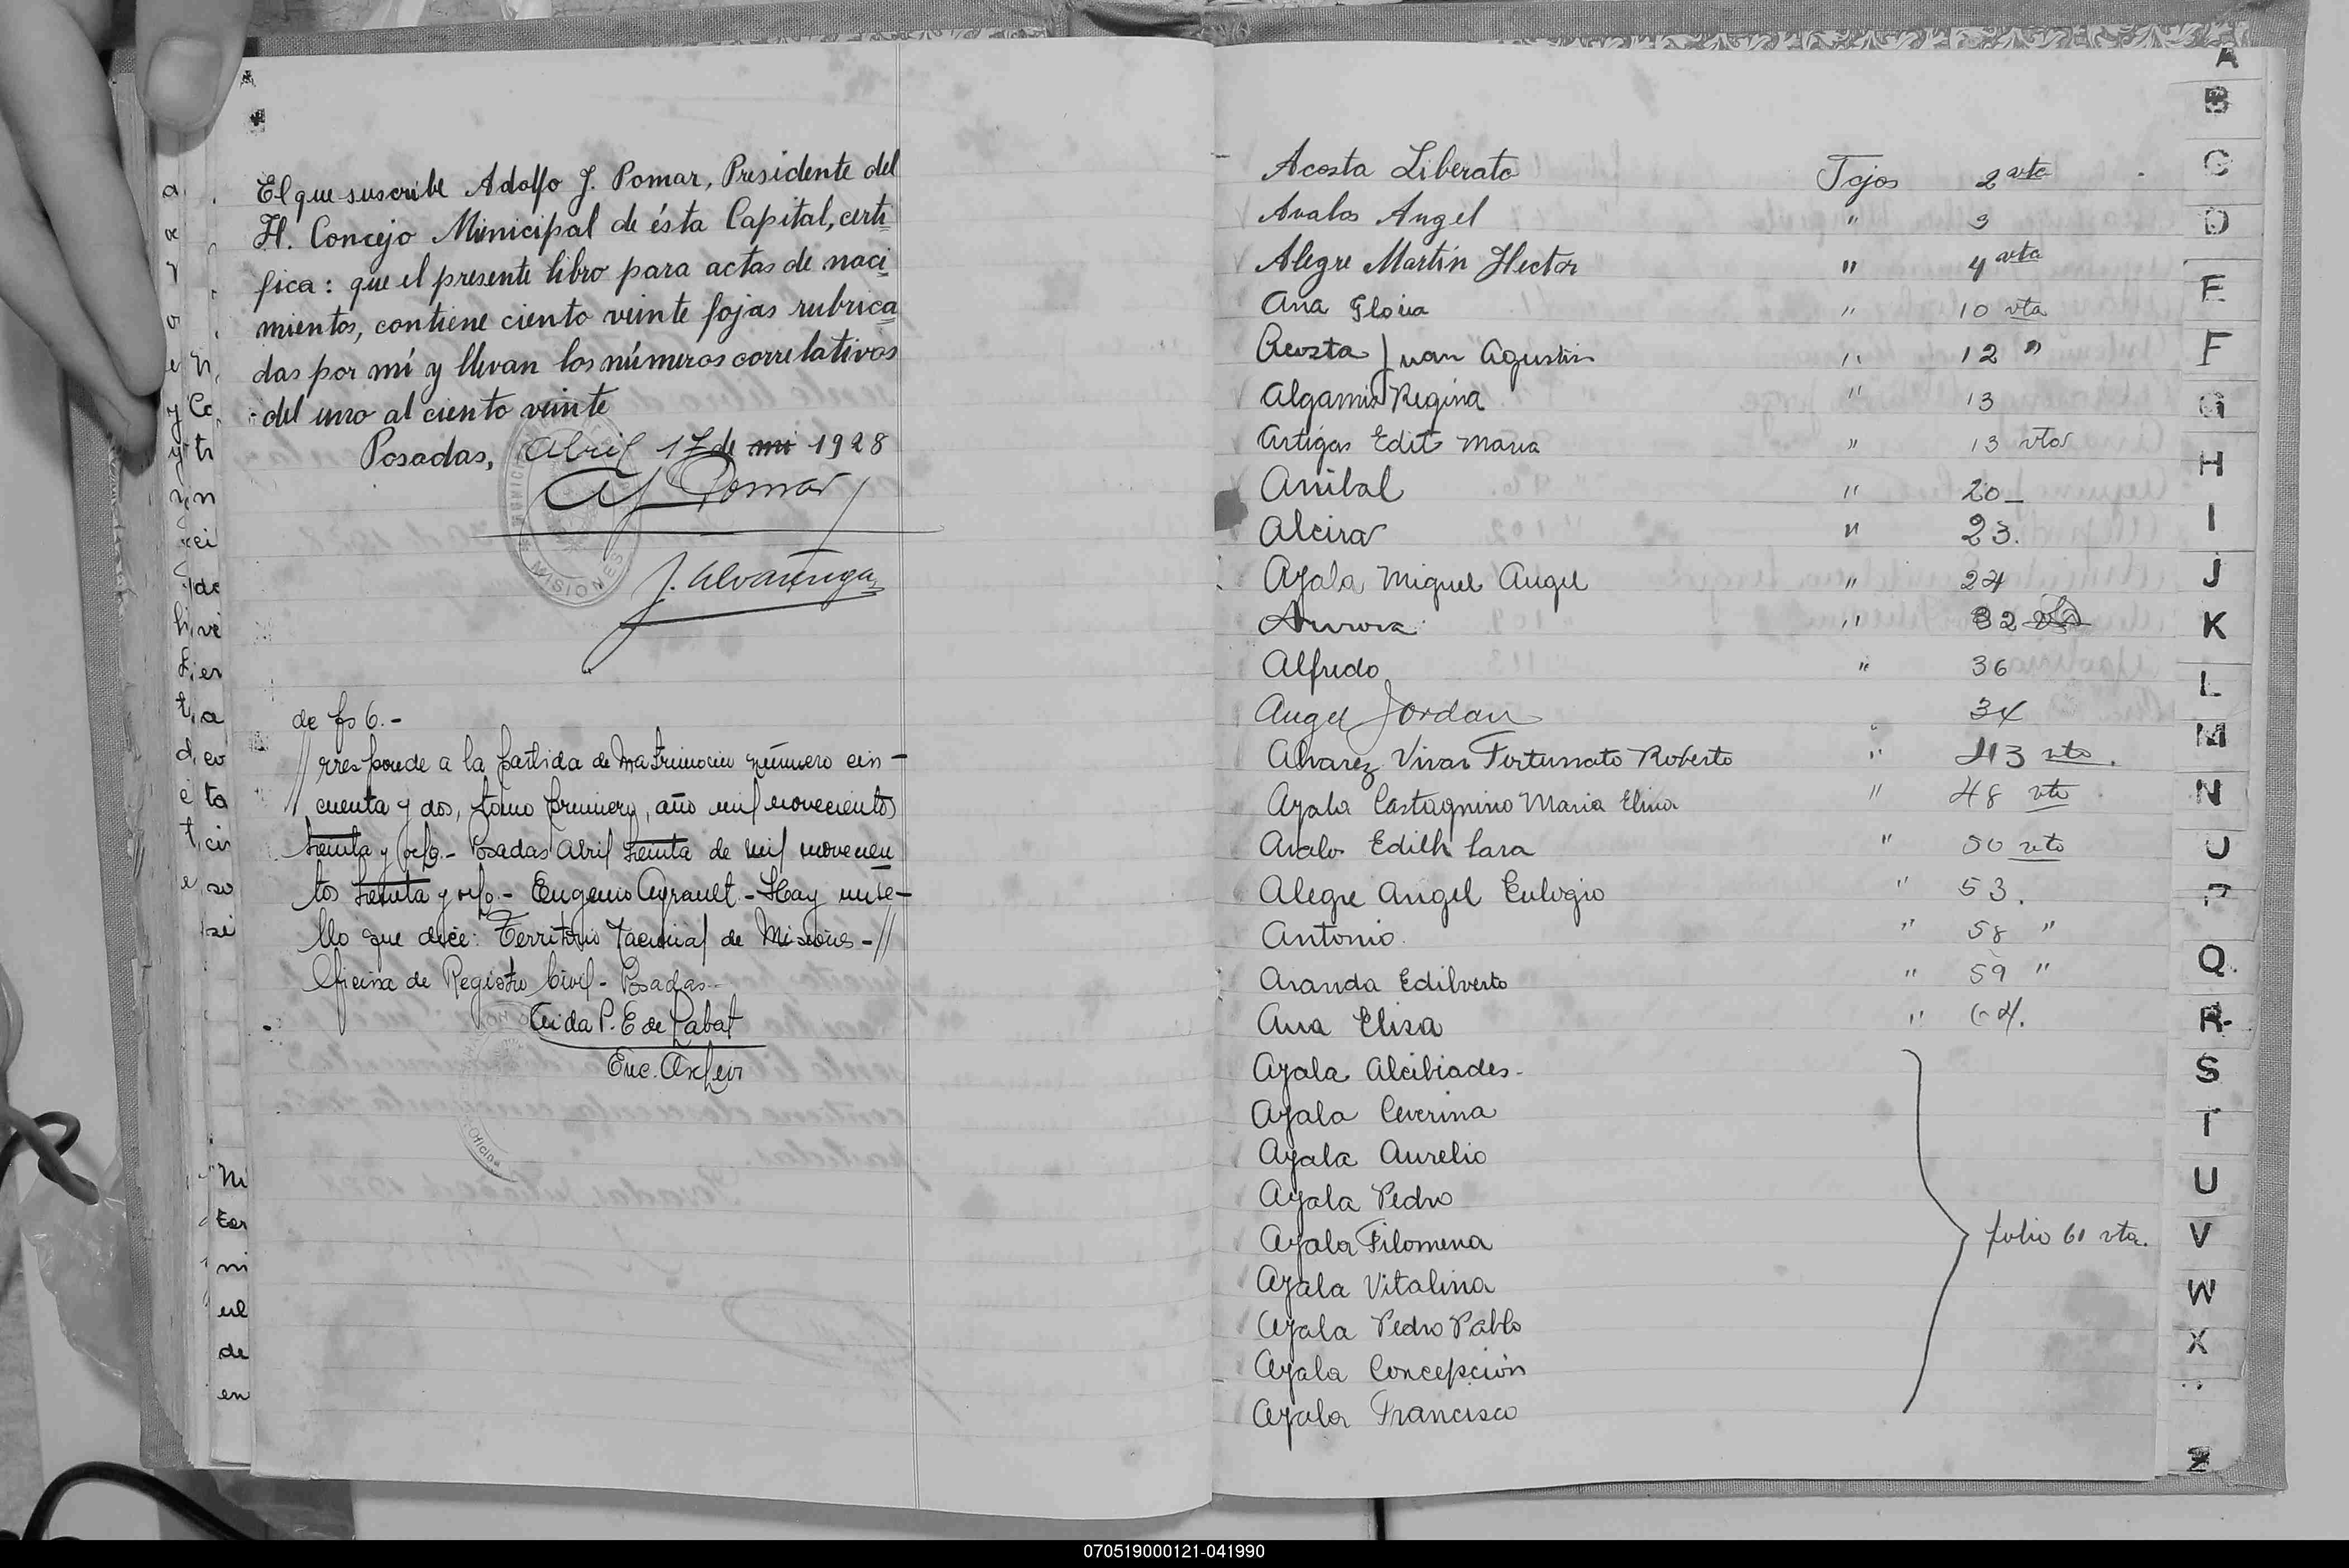 El que suscribe Adolfo J. Pomar, Presidente del
H. Concejo Municipal de ésta Capital, certi
fica: que el presente libro para actas de naci
mientos, contiene ciento veinte fojas rubrica
das por mí y llevan los números correlativos
del uno al ciento veinte
Posadas, Abril 17 de 1928
AJ Pomar
J. Alvarenga
MISIONES
de fs 6.-
//rresponde a la partida de matrimonio número cin-
cuenta y dos, tomo primero, año mil novecientos
treinta y ocho.- Posadas Abril treinta de mil novecien
tos treinta y ocho.- Eugenio Ayrault - Hay un se-
llo que dice: Territorio Nacional de Misiones -//
Oficina de Registro Civil - Posadas
P. E de Pabat
Enc. Archivo
Acosta Liberato Fojos 2 vta
Avalos Angel " 3
Alegre Martín Hector " 4 vta
Ana Gloria " 10 vta
Acosta Juan Agustin " 12 "
Regina " 13
Artigas Edit Maria " 13 vta
Anibal " 20-
Alcira " 23.
Ayala Miguel Angel " 24
Aurora " 32
Alfredo " 36
Angel Jordan 34
Alvarez Vivar Fortunato Roberto " 43 vto.
Ayala Castagnino Maria Elina " 48 vto
Avalo Edith Sara " 50 vto
Alegre Angel Eulogio " 53.
Antonio " 58 "
Aranda Edilverto " 59 "
Ana Elisa " 64.
Ayala Alcibiades -
Ayala Ceverina
Ayala Aurelio
Ayala Pedro
Ayala Filomena folio 61 vta.
Ayala Vitalina
Ayala Pedro Pablo
Ayala Concepción
Ayala Francisco
A
B
C
D
E
F
G
H
I
J
K
L
M
N
O
P
Q
R
S
T
U
V
W
X
Z
070519000121-041990